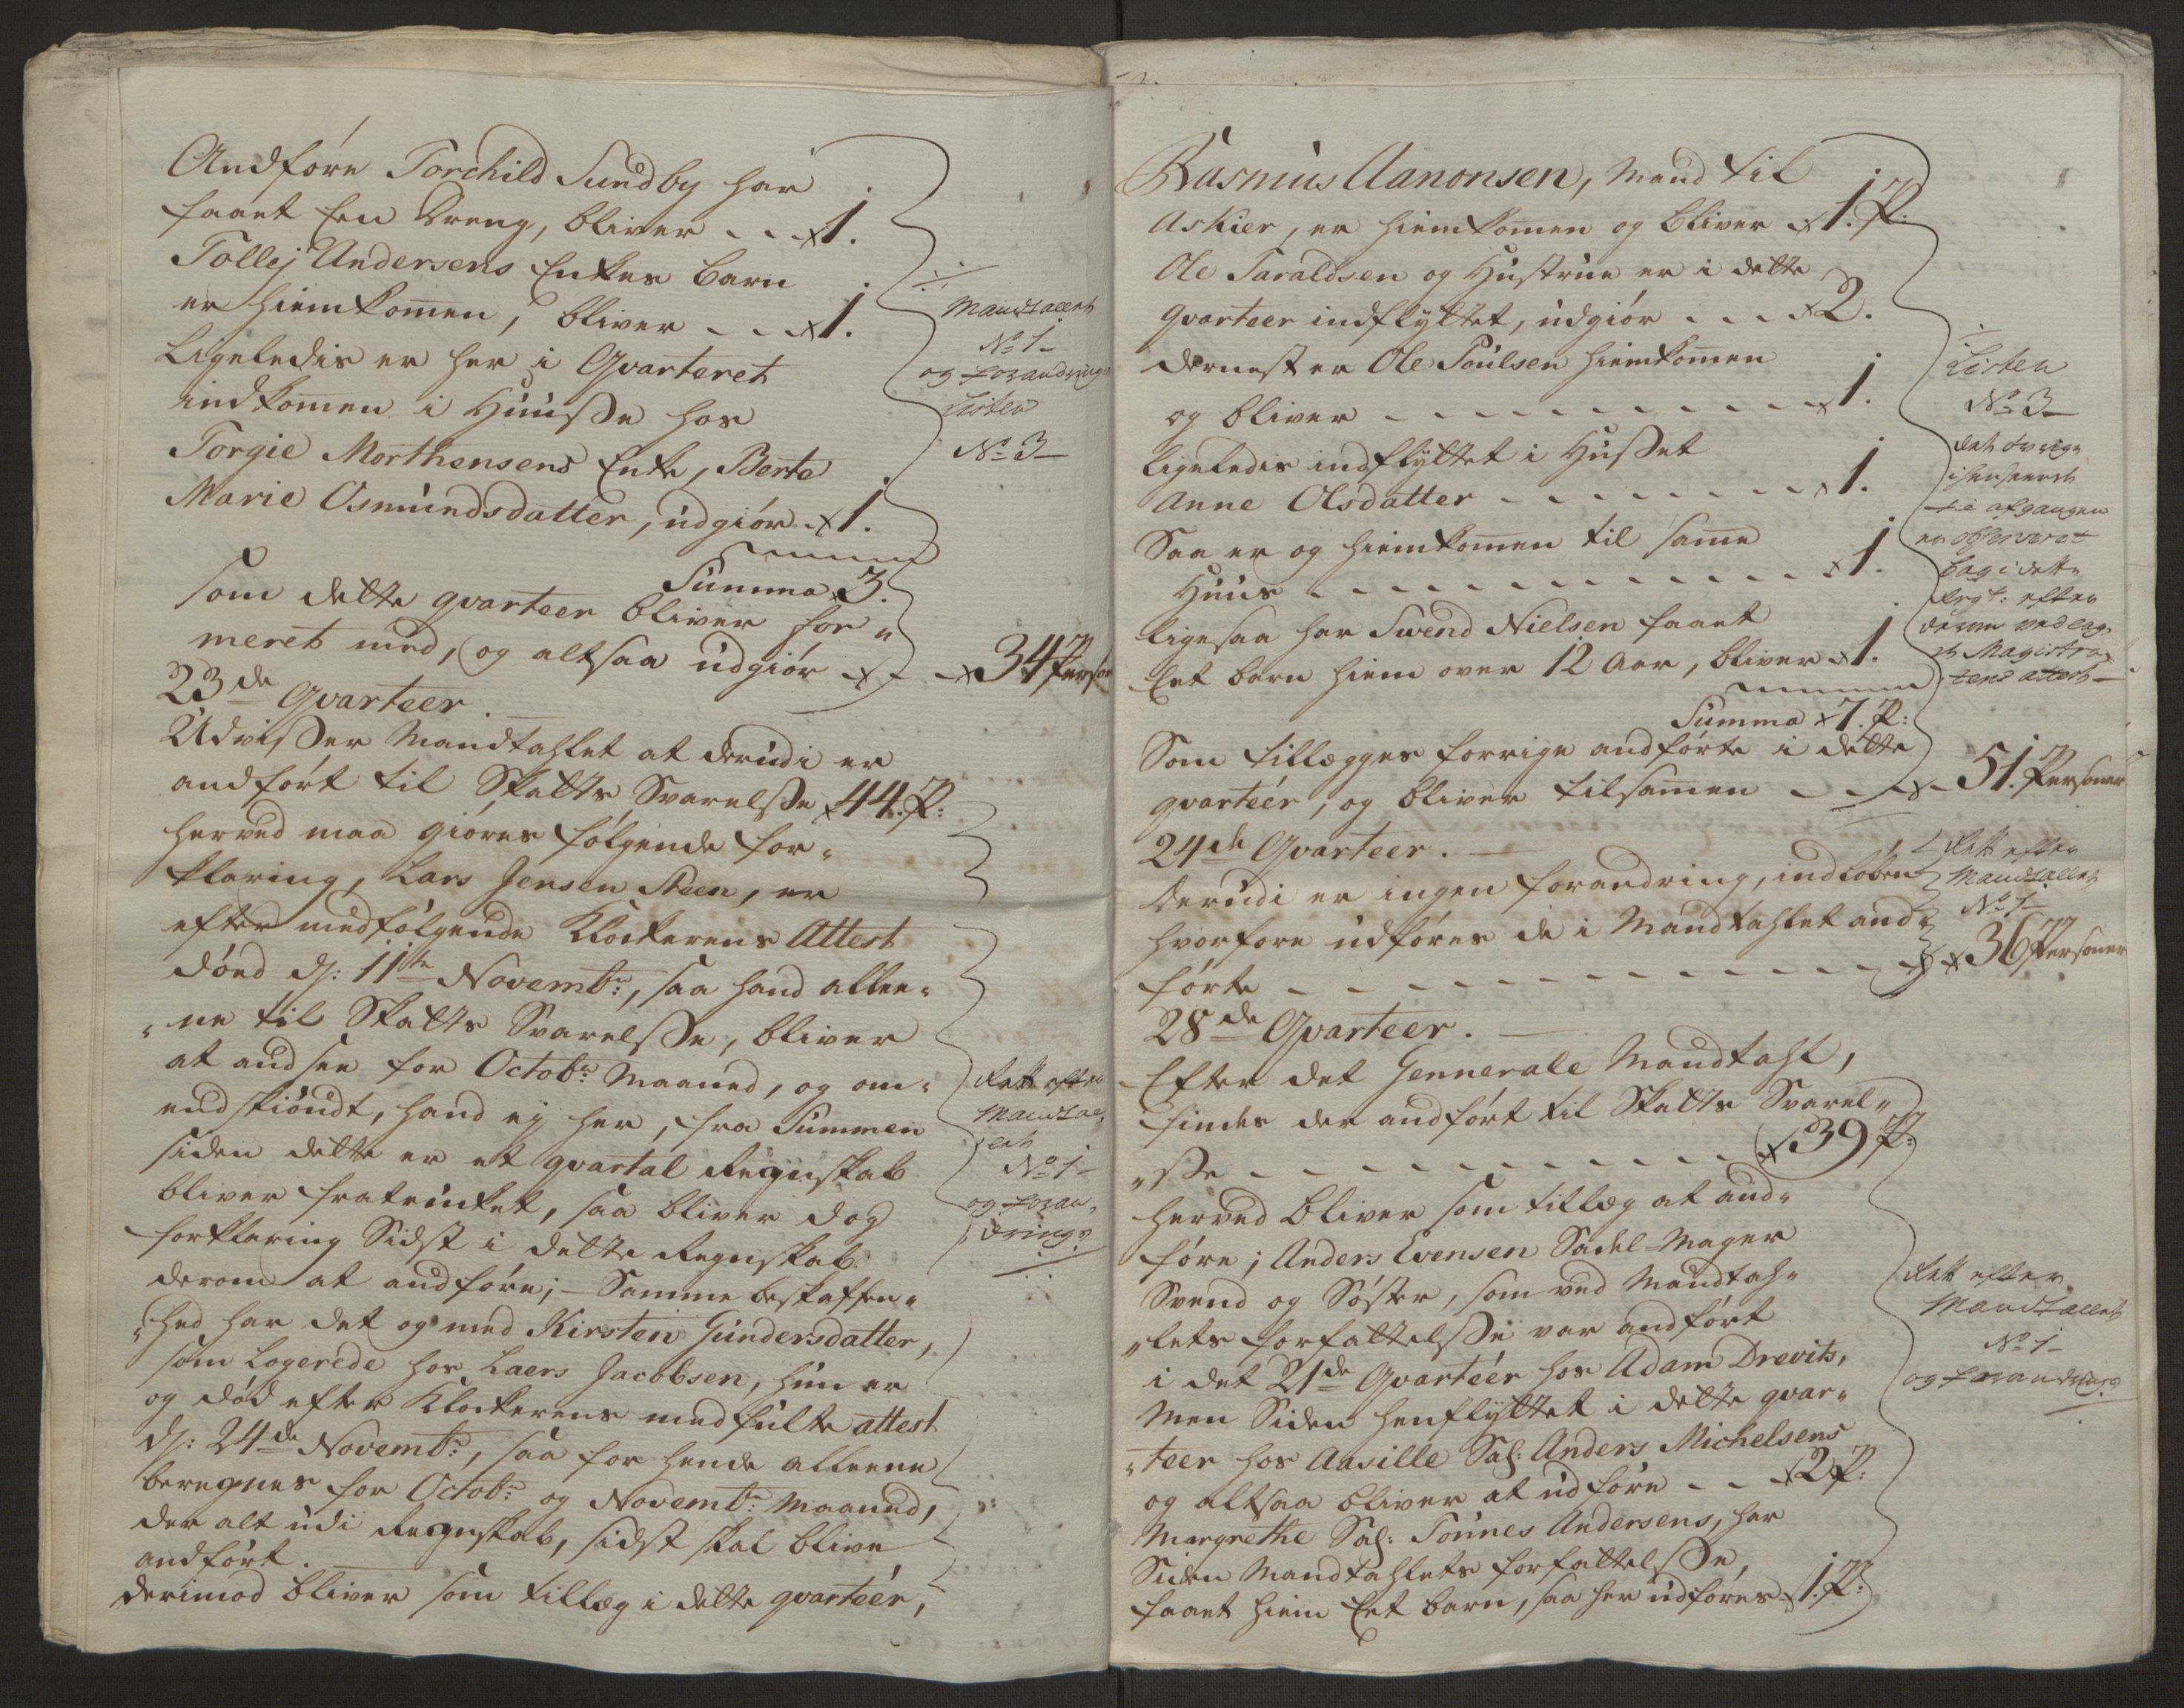 Andføre Torchild Sundby har
faaet Een Dreng, bliver - - x 1.
Tollej Andersens Enkes barn
er hiemkomen, bliver - - x 1.
Ligeledis er her i Qvarteret
indkomen i Huusse hos
Torgie Morthensens Enke, Berte
Marie Osmundsdatter, udgiør x 1.
Summa x 3.
som dette qvarteer bliver for„
meret med, og altsaa udgiør x - x 34 Person
Mandtallet
No 1-
og forandrings
Listen
No 3-
23de Qvarteer.
Udvisser Mandtahlet at derudi er
andført til Skatts Svarelsse x 44. P:
herved maa giøres følgende for„
klaring, Lars Jensen Steen, er
efter medfølgende Klockerens Attest
død d: 11te Novembr:, saa hand allee„
„ne til Skatts Svarelsse, bliver
at andsee for Octobr: Maaned, og om„
endskiøndt, hand ej her, fra Summen
siden dette er et qvartal Regnskab
bliver fratrucket, saa bliver dog
forklaring Sidst i dette Regnskab
derom at andføre; - Samme beskaffen„
„hed har det og med Kirsten Gundersdatter,
som Logerede hos Laers Jacobsen, hun er
og død efter Klockerens medfulte attest
d: 24de Novembr:, saa for hende alleene
beregnes for Octobr: og Novembr: Maaned,
der alt udi Regnskab, sidst skal blive
andført.
derimod bliver som tillæg i dette qvarteer,
Rett efter
Mandtal„
let
No 1-
og foran„
drings
Rasmus Aanonsen, Mand til
Askier, er hiemkomen og bliver x 1. P:
Ole Taraldsen og Hustrue er i dette
Qvarteer indflyttet, udgiør - - - x 2.
dernest er Ole Poulsen hiemkomen
og bliver - - - - - - - - - x 1.
ligeledis indflyttet i Husset
Anne Olsdatter - - - - - - - x 1.
Saa er og hiemkomen til samme
Huus - - - - - - - - - - x 1.
ligesaa har Svend Nielsen faaet
Eet barn hiem over 12 Aar, bliver x 1.
Summa x 7. P:
Som tillægges forrige andførte i dette
qvarteer, og bliver tilsamen - - x - 51. Personer
Listen
No 3-
det øvrige
afgangen
er observeret
bag i dette
Regt: efter
derom vedlag„
Magistra„
tens attest-
24de Qvarteer.
derudi er ingen forandring, indløben
hvorfore udføres de i Mandtahlet and„
førte - - - - - - - - - - - x 36 Personer
Rett efter
Mandtallet
No 1-
28de Qvarteer.
Efter det Gennerale Mandtahl,
findes der andført til Skatts Svarel„
„sse - - - - - - - - - - x 39 P:
herved bliver som tillæg at and„
føre; Anders Evensen Sadel-Mager
Svend og Søster, som ved Mandtah„
„lets forfattelsse var andført
i det 21de Qvarteer hos Adam Drevits,
Men Siden henflyttet i dette qvar„
„teer hos Aasille Sal: Anders Michelsens
og altsaa bliver at udføre - - x 2 P:
Margrethe Sal: Tønnes Andersens, har
Siden Mandtahlets forfattelsse,
faaet hiem Eet barn, saa her udføres x 1. P:
Rett efter
Mandtallet
No 1-
og forandrings